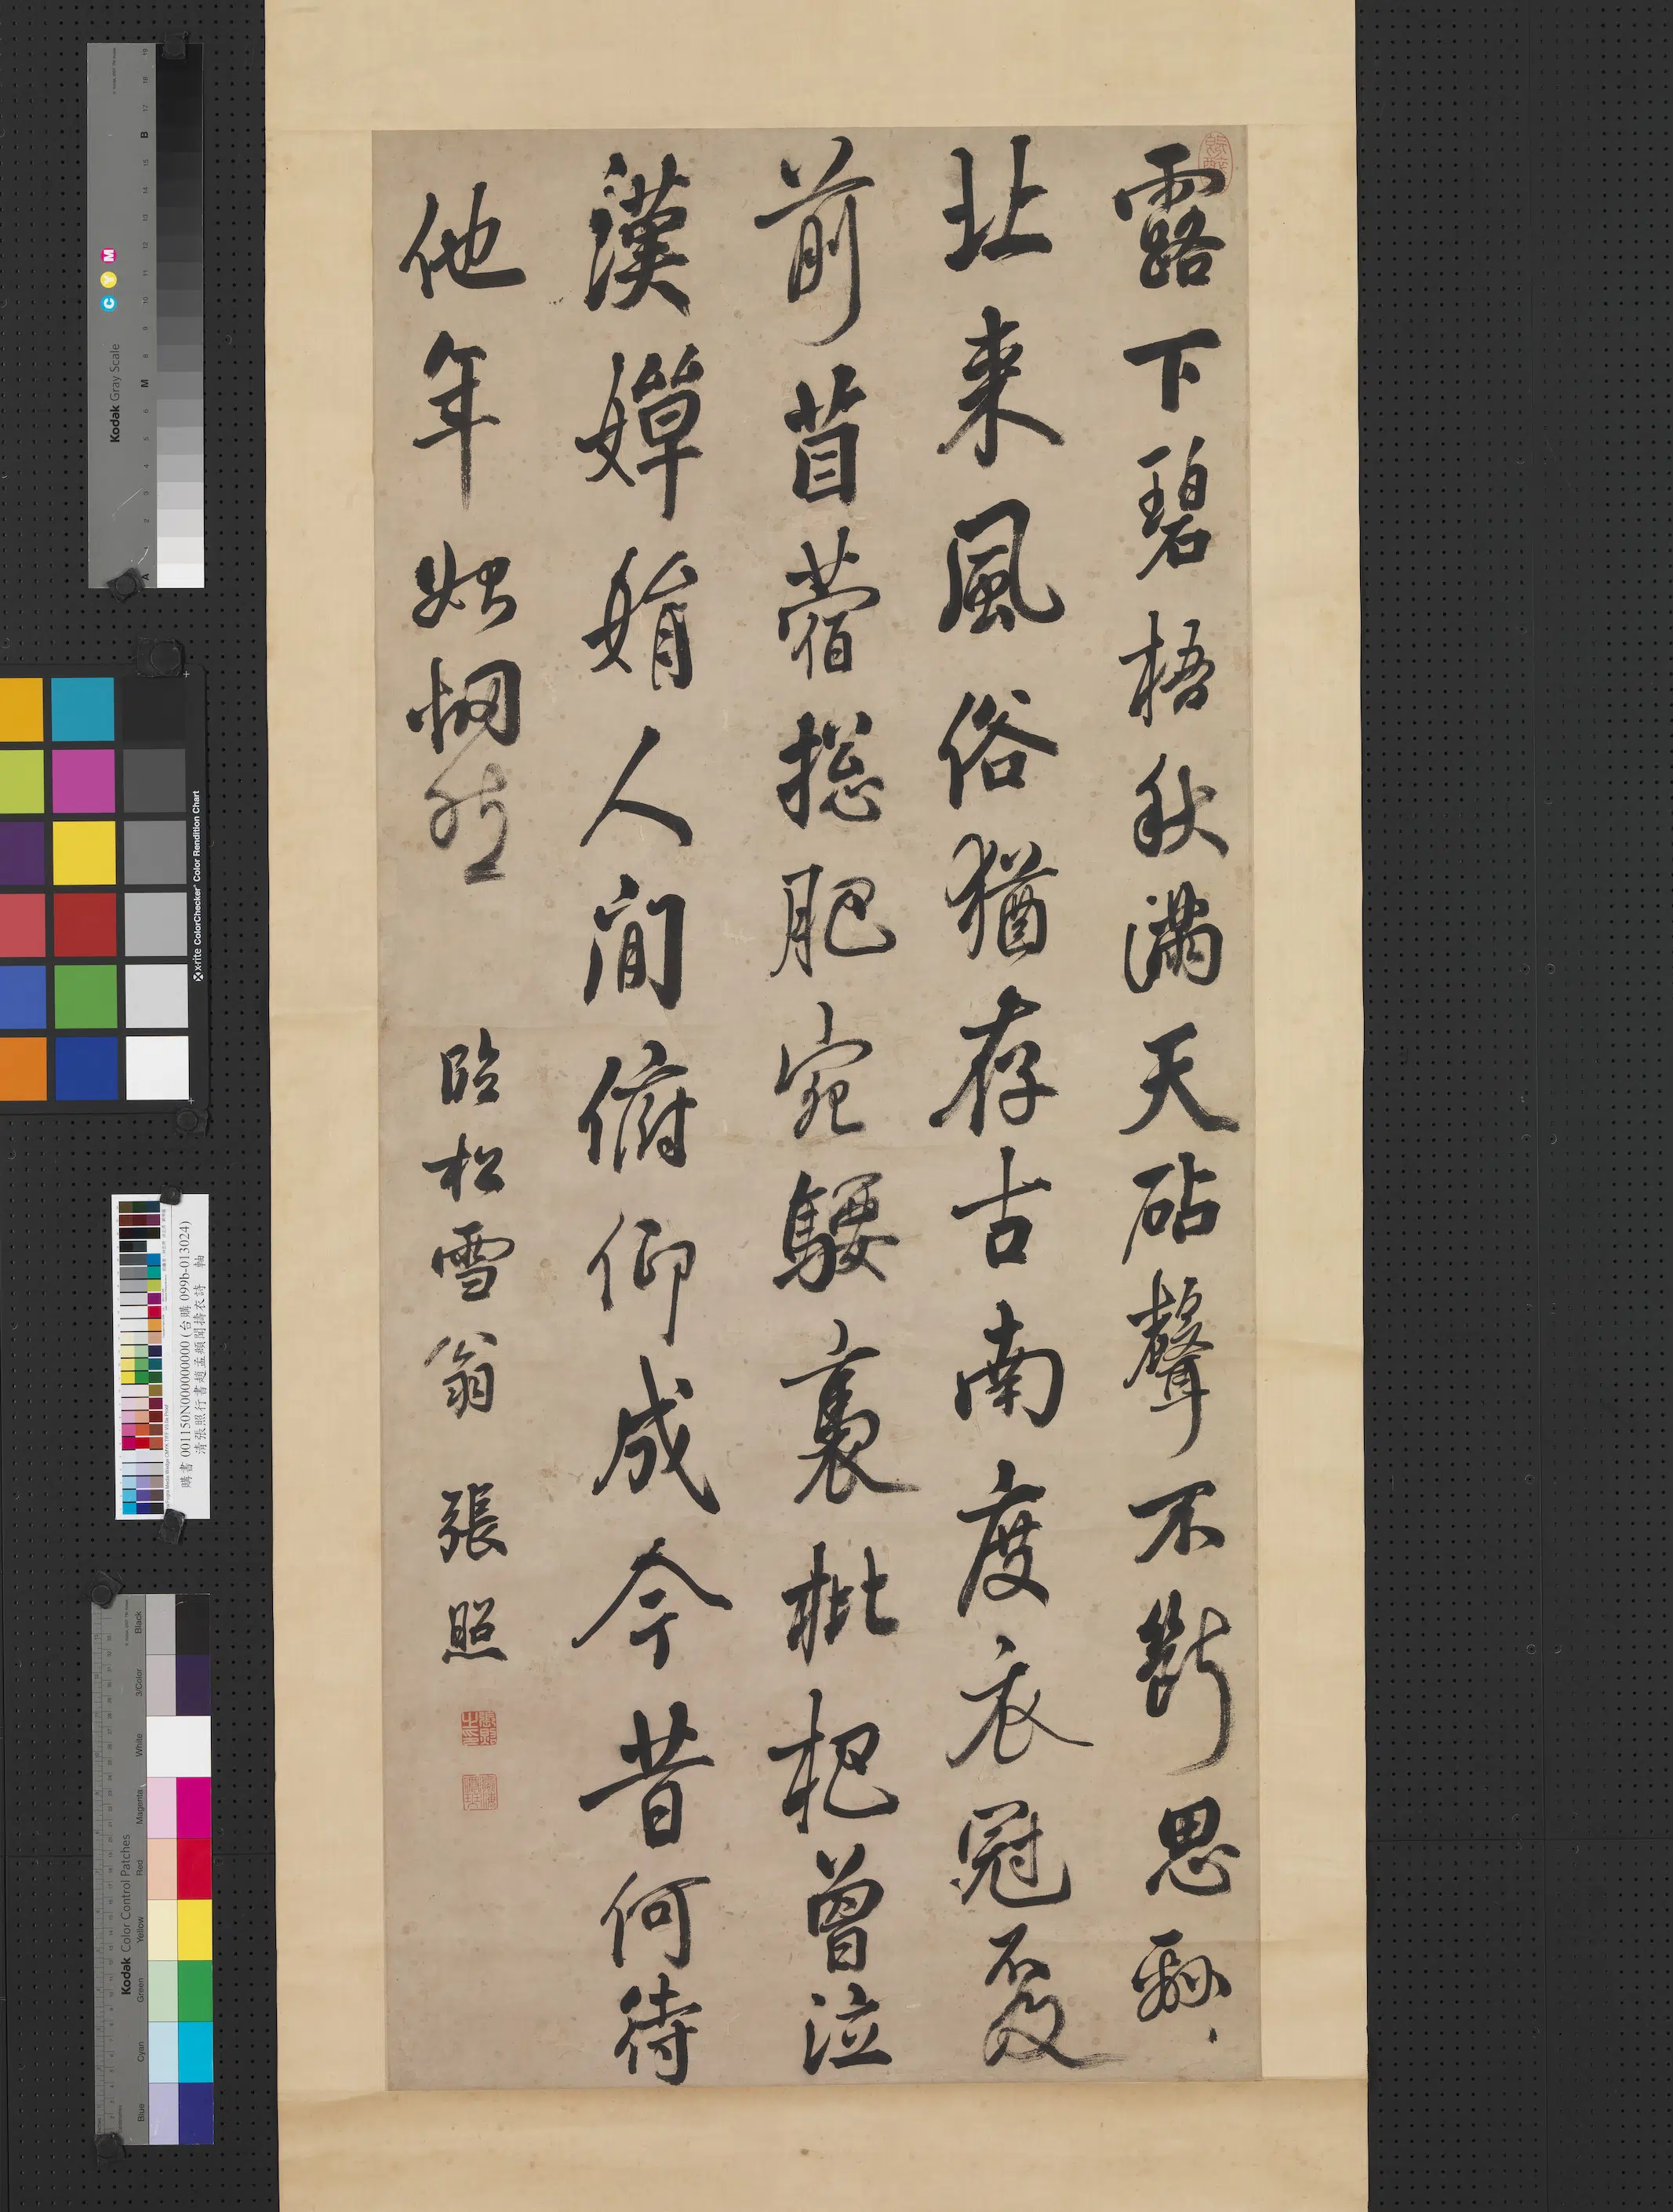 露下碧梧秋滿天砧聲不斷思緜々
北来風俗猶存古南度衣冠不及
前苜蓿揔肥宛騕褭枇杷曾泣
漢嬋娟人間俯仰成今昔何待
他年始惘然
臨松雪翁 張照
Kodak Gray Scale
C Y M
A 1 2 3 4 5 6 M 8 9 10 11 12 13 14 15 B 17 18 19
x-rite ColorChecker Color Rendition Chart
購書 001150N000000000 (台購 099b-013024)
清張照行書趙孟頫聞擣衣詩 軸
Kodak Color Control Patches
Blue Cyan Green Yellow Red Magenta White 3/Color Black